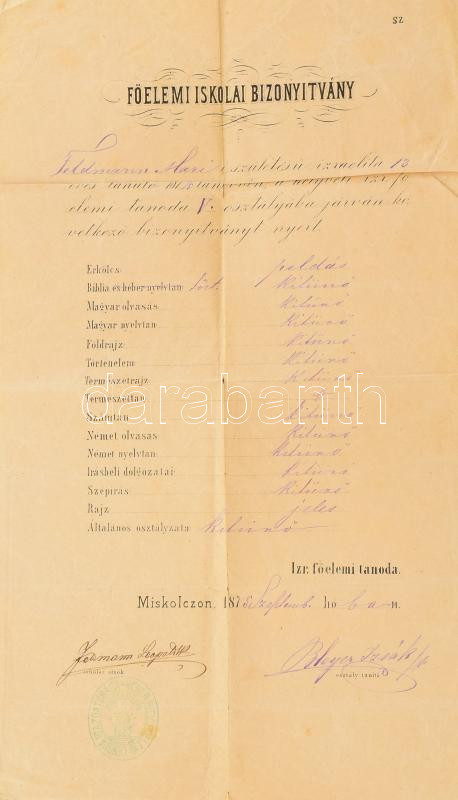 sz
FŐELEMI ISKOLAI BIZONYITVÁNY
Feldmann Mari születésü izraelita 13
éves tanuló a helybeli izr. fő
elemi tanoda V. osztályába járván kö
vetkező bizonyitványt nyert.
Erkölcs: példás
Biblia és héber nyelvtan: Tört. kitünő
Magyar olvasás: kitünő
Magyar nyelvtan: kitünő
Földrajz: kitünő
Történelem: kitünő
Természetrajz: kitünő
Természettan:
Számtan: kitünő
Német olvasás: kitünő
Német nyelvtan: kitünő
Irásbeli dolgozatai: kitünő
Szépirás: kitünő
Rajz: jeles
Általános osztályzata: kitünő
Izr. főelemi tanoda.
Miskolczon, 187 Septemb. hó ba n.
iskolai elnök
osztály tanitó
darabanth